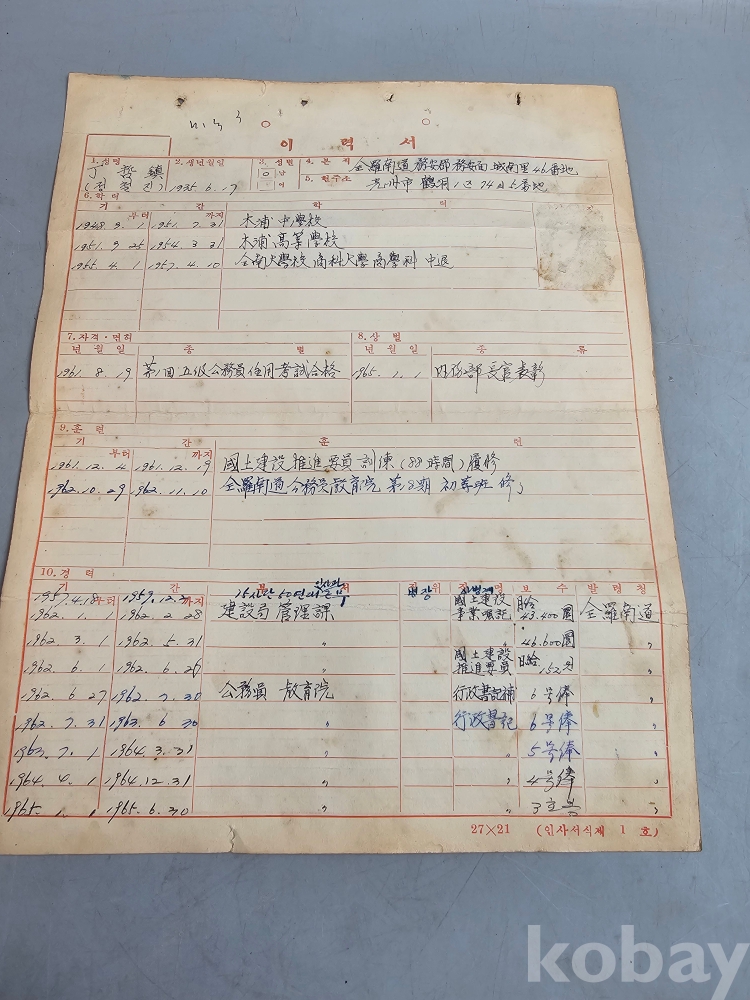 이 력 서
1. 성명 丁哲鎭 (정철진)
2. 생년월일 1935. 6. 17
3. 성별 남 여
4. 본적 全羅南道 務安郡 務安面 城南里 46番地
5. 현주소 光州市 鶴洞
6. 학력
기 간 학 력
부터 까지
1948. 9. 1 1951. 7. 31 木浦 中學校
1951. 9. 25 1954. 3. 31 木浦 高等學校
1955. 4. 1 1957. 4. 10 全南大學校 商科大學 商學科 中退
7. 자격·면허
8. 상벌
년 월 일 종 별 년 월 일 종 류
1961. 8. 19 第1回 五级公務員 任用考試合格 1965. 1. 1 長官表彰
9. 훈련
기 간 훈 련
부터 까지
1961. 12. 4 1961. 12. 19 國土建設 推進要員 訓練 (88時間) 履修
1962. 10. 29 1962. 11. 10 全羅南道 公務員敎育院 第18期 初等班 修
10. 경력
기 간 부 서 직위 직명 보수 발령청
부터 까지
1957. 4. 18 병장
1962. 1. 1 1962. 2. 28 建設局 管理課 國土建設 月給 43.400圜 全羅南道
1962. 3. 1 1962. 5. 31 〃 〃 46.600圜 〃
1962. 6. 1 1962. 6. 26 〃 國土建設 推進要員 日給 152원 〃
1962. 6. 27 1962. 7. 30 公務員 敎育院 行政書記補 6号俸 〃
1962. 7. 31 1963. 6. 30 〃 行政書記 6号俸 〃
1963. 7. 1 1964. 3. 31 〃 〃 5号俸 〃
1964. 4. 1 1964. 12. 31 〃 〃 4号俸 〃
1965. 1. 1 1965. 6. 30 〃 〃 3호봉 〃
27×21 (인사서식제 1 호)
kobay